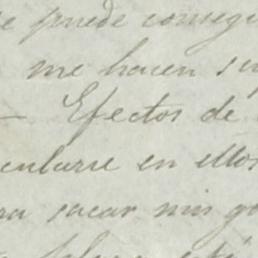 se puede consegui
me hacen su
– Efectos de
cularse en ellos
ra sacar mis ga